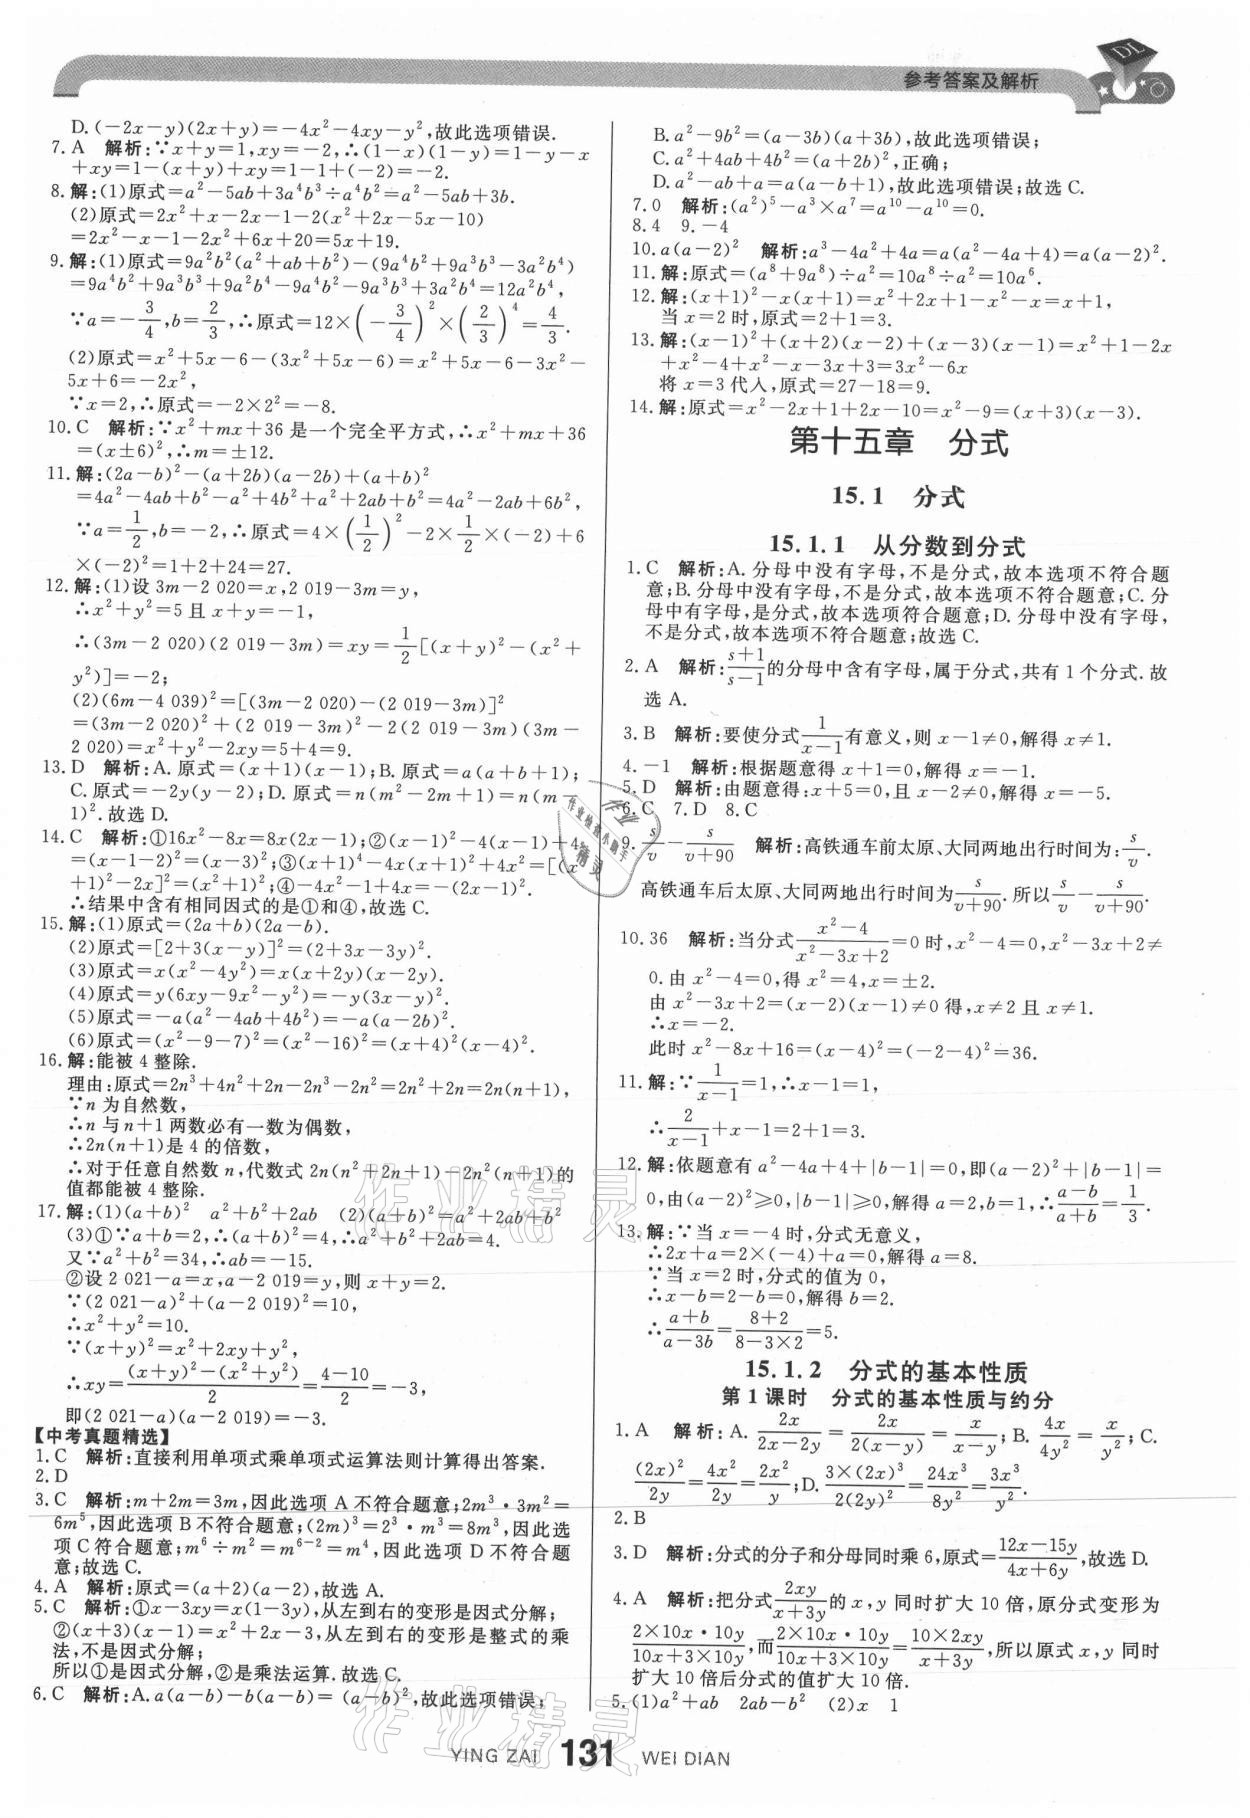 参考答案及解析
DL
D.(-2x-y)(2x+y)=-4x²-4xy-y²,故此选项错误.
7.A 解析:∵x+y=1,xy=-2,∴(1-x)(1-y)=1-y-x
+xy=1-(x+y)+xy=1-1+(-2)=-2.
8.解:(1)原式=a²-5ab+3a⁴b³÷a⁴b²=a²-5ab+3b.
(2)原式=2x²+x-2x-1-2(x²+2x-5x-10)
=2x²-x-1-2x²+6x+20=5x+19.
9.解:(1)原式=9a²b²(a²+ab+b²)-(9a⁴b²+9a³b³-3a²b⁴)
=9a⁴b²+9a³b³+9a²b⁴-9a⁴b²-9a³b³+3a²b⁴=12a²b⁴,
∵a=-3/4,b=2/3,∴原式=12×(-3/4)²×(2/3)⁴=4/3.
(2)原式=x²+5x-6-(3x²+5x-6)=x²+5x-6-3x²-
5x+6=-2x²,
∵x=2,∴原式=-2×2²=-8.
10.C 解析:∵x²+mx+36是一个完全平方式,∴x²+mx+36
=(x±6)²,∴m=±12.
11.解:(2a-b)²-(a+2b)(a-2b)+(a+b)²
=4a²-4ab+b²-a²+4b²+a²+2ab+b²=4a²-2ab+6b²,
∵a=1/2,b=-2,∴原式=4×(1/2)²-2×1/2×(-2)+6
×(-2)²=1+2+24=27.
12.解:(1)设3m-2 020=x,2 019-3m=y,
∴x²+y²=5且x+y=-1,
∴(3m-2 020)(2 019-3m)=xy=1/2[(x+y)²-(x²+
y²)]=-2;
(2)(6m-4 039)²=[(3m-2 020)-(2 019-3m)]²
=(3m-2 020)²+(2 019-3m)²-2(2 019-3m)(3m-
2 020)=x²+y²-2xy=5+4=9.
13.D 解析:A.原式=(x+1)(x-1);B.原式=a(a+b+1);
C.原式=-2y(y-2);D.原式=n(m²-2m+1)=n(m-
1)².故选D.
14.C 解析:①16x²-8x=8x(2x-1);②(x-1)²-4(x-1)+4
=(x-1-2)²=(x-3)²;③(x+1)⁴-4x(x+1)²+4x²=[(x
+1)²-2x]²=(x²+1)²;④-4x²-1+4x=-(2x-1)².
∴结果中含有相同因式的是①和④,故选C.
15.解:(1)原式=(2a+b)(2a-b).
(2)原式=[2+3(x-y)]²=(2+3x-3y)².
(3)原式=x(x²-4y²)=x(x+2y)(x-2y).
(4)原式=y(6xy-9x²-y²)=-y(3x-y)².
(5)原式=-a(a²-4ab+4b²)=-a(a-2b)².
(6)原式=(x²-9-7)²=(x²-16)²=(x+4)²(x-4)².
16.解:能被4整除.
理由:原式=2n³+4n²+2n-2n³-2n²=2n²+2n=2n(n+1),
∵n为自然数,
∴n与n+1两数必有一数为偶数,
∴2n(n+1)是4的倍数,
∴对于任意自然数n,代数式2n(n²+2n+1)-2n²(n+1)的
值都能被4整除.
17.解:(1)(a+b)² a²+b²+2ab (2)(a+b)²=a²+2ab+b²
(3)①∵a+b=2,∴(a+b)²=4,∴a²+b²+2ab=4.
又∵a²+b²=34,∴ab=-15.
②设2 021-a=x,a-2 019=y,则x+y=2.
∵(2 021-a)²+(a-2 019)²=10,
∴x²+y²=10.
∵(x+y)²=x²+2xy+y²,
∴xy=((x+y)²-(x²+y²))/2=(4-10)/2=-3,
即(2 021-a)(a-2 019)=-3.
【中考真题精选】
1.C 解析:直接利用单项式乘单项式运算法则计算得出答案.
2.D
3.C 解析:m+2m=3m,因此选项A不符合题意;2m³·3m²=
6m⁵,因此选项B不符合题意;(2m)³=2³·m³=8m³,因此选
项C符合题意;m⁶÷m²=m⁶⁻²=m⁴,因此选项D不符合题
意;故选C.
4.A 解析:原式=(a+2)(a-2),故选A.
5.C 解析:①x-3xy=x(1-3y),从左到右的变形是因式分解;
②(x+3)(x-1)=x²+2x-3,从左到右的变形是整式的乘
法,不是因式分解;
所以①是因式分解,②是乘法运算.故选C.
6.C 解析:A.a(a-b)-b(a-b)= (a-b)²,故此选项错误;
B.a²-9b²=(a-3b)(a+3b),故此选项错误;
C.a²+4ab+4b²=(a+2b)²,正确;
D.a²-ab+a=a(a-b+1),故此选项错误;故选C.
7.0 解析:(a²)⁵-a³×a⁷=a¹⁰-a¹⁰=0.
8.4 9.-4
10.a(a-2)² 解析:a³-4a²+4a=a(a²-4a+4)=a(a-2)².
11.解:原式=(a⁸+9a⁸)÷a²=10a⁸÷a²=10a⁶.
12.解:(x+1)²-x(x+1)=x²+2x+1-x²-x=x+1,
当x=2时,原式=2+1=3.
13.解:(x-1)²+(x+2)(x-2)+(x-3)(x-1)=x²+1-2x
+x²-4+x²-x-3x+3=3x²-6x
将x=3代入,原式=27-18=9.
14.解:原式=x²-2x+1+2x-10=x²-9=(x+3)(x-3).
第十五章 分式
15.1 分式
15.1.1 从分数到分式
1.C 解析:A.分母中没有字母,不是分式,故本选项不符合题
意;B.分母中没有字母,不是分式,故本选项不符合题意;C.分
母中有字母,是分式,故本选项符合题意;D.分母中没有字母,
不是分式,故本选项不符合题意;故选C.
2.A 解析:(s+1)/(s-1)的分母中含有字母,属于分式,共有1个分式.故
选A.
3.B 解析:要使分式1/(x-1)有意义,则x-1≠0,解得x≠1.
4.-1 解析:根据题意得x+1=0,解得x=-1.
5.D 解析:由题意得:x+5=0,且x-2≠0,解得x=-5.
6.C 7.D 8.C
9.s/v-s/(v+90) 解析:高铁通车前太原、大同两地出行时间为:s/v.
高铁通车后太原、大同两地出行时间为s/(v+90).所以s/v-s/(v+90).
10.36 解析:当分式(x²-4)/(x²-3x+2)=0时,x²-4=0,x²-3x+2≠
0.由x²-4=0,得x²=4,x=±2.
由x²-3x+2=(x-2)(x-1)≠0得,x≠2且x≠1.
∴x=-2.
此时x²-8x+16=(x-4)²=(-2-4)²=36.
11.解:∵1/(x-1)=1,∴x-1=1,
∴2/(x-1)+x-1=2+1=3.
12.解:依题意有a²-4a+4+|b-1|=0,即(a-2)²+|b-1|=
0,由(a-2)²≥0,|b-1|≥0,解得a=2,b=1,∴(a-b)/(a+b)=1/3.
13.解:∵当x=-4时,分式无意义,
∴2x+a=2×(-4)+a=0,解得a=8.
∵当x=2时,分式的值为0,
∴x-b=2-b=0,解得b=2.
∴(a+b)/(a-3b)=(8+2)/(8-3×2)=5.
15.1.2 分式的基本性质
第1课时 分式的基本性质与约分
1.A 解析:A.2x/(2x-2y)=2x/(2(x-y))=x/(x-y);B.4x/4y²=x/y²;C.
(2x)²/2y=4x²/2y=2x²/y;D.3×(2x)³/2(2y)²=24x³/8y²=3x³/y².
2.B
3.D 解析:分式的分子和分母同时乘6,原式=(12x-15y)/(4x+6y),故选D.
4.A 解析:把分式2xy/(x+3y)的x,y同时扩大10倍,原分式变形为
(2×10x·10y)/(10x+3×10y),而(2×10x·10y)/(10x+3×10y)=(10×2xy)/(x+3y),所以原式x,y同时
扩大10倍后分式的值扩大10倍.
5.(1)a²+ab 2ab-b² (2)x 1
作业精灵
作业精灵
作业
作业检查小助手
精灵
YING ZAI 131 WEI DIAN